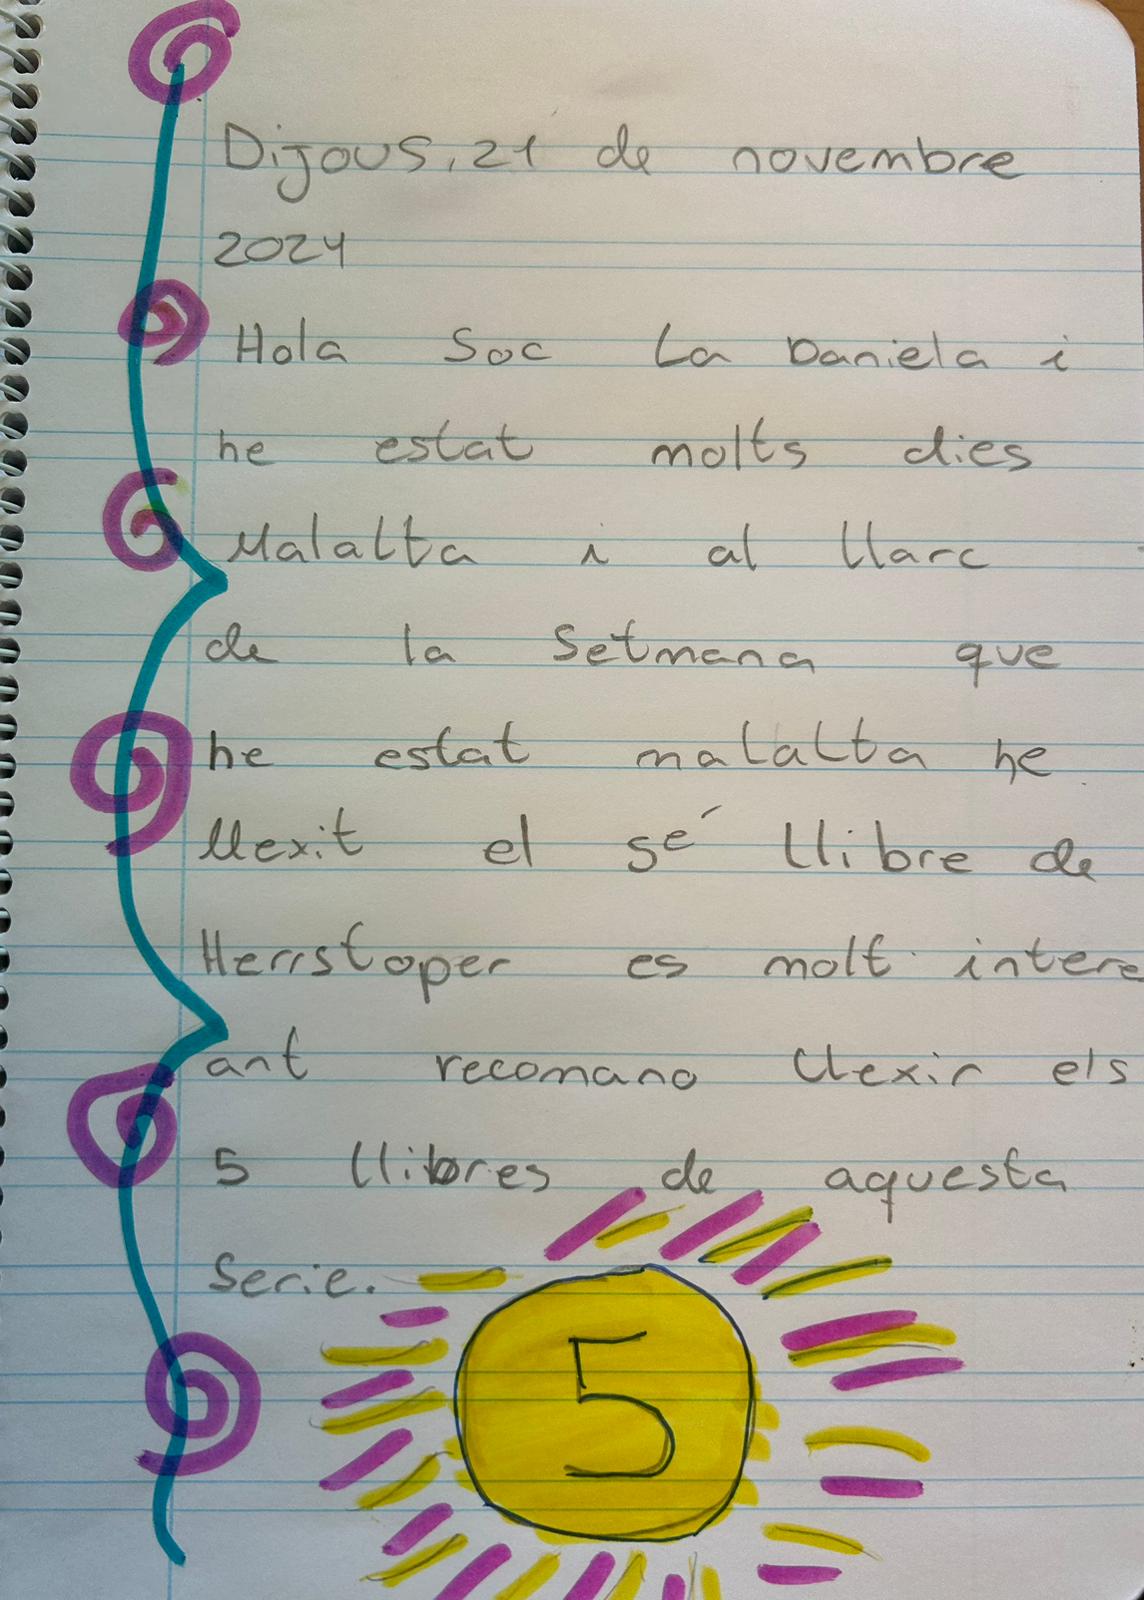 Dijous, 21 de novembre
2024
Hola Soc La Daniela i
he estat molts dies
Malalta i al llarc
de la Setmana que
he estat malalta he
llexit el 5é llibre de
Herrstoper es molt intere
ant recomano llexir els
5 llibres de aquesta
Serie.
5